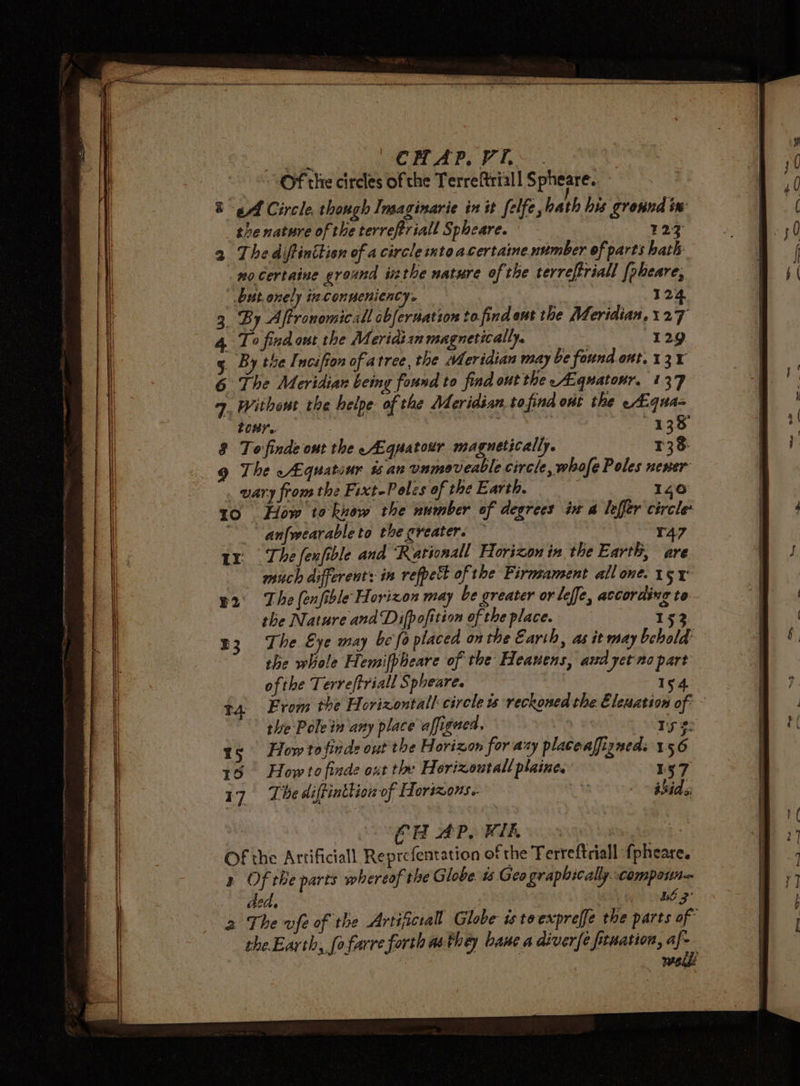 CHAP. VI.
Of the circles of the Terreſtriall Spheare.
1 A Circle, though Imaginarie in it ſelfe, hath his ground in
the nature of the terreſtriall Spheare. 123
2 The diſtinction of a circle into a certaine number of parts hath
no certaine ground in the nature of the terreſtriall ſpheare,
but onely in conueniency. 124
3 By Aſtronomicall obſeruation to find out the Meridian, 127
4 To find out the Meridian magnetically. 129
5 By the Inciſion of a tree, the Meridian may be found out. 131
6 The Meridian being found to find out the Æquatour. 137
7 Without the helpe of the Meridian to find out the Æqua-
tour. 138
8 To finde out the Æquatour magnetically. 138
9 The Æquatour is an vnmoveable circle, whoſe Poles neuer
vary from the Fixt-Poles of the Earth. 140
10 How to know the number of degrees in a leſſer circle
anſwearable to the greater. 147
11 The ſenſible and Rationall Horizon in the Earth, are
much different: in reſpect of the Firmament all one. 151
12 The ſenſible Horizon may be greater or leſſe, according to
the Nature and Diſpoſition of the place. 153
13 The Eye may be ſo placed on the Earth, as it may behold
the whole Hemiſpheare of the Heauens, and yet no part
of the Terreſtriall Spheare. 154
14 From the Horizontall circle is reckoned the Eleuation of
the Pole in any place aſſigned.
15 How to finde out the Horizon for any place aſſigned. 156
16 How to finde out the Horizontall plaine. 157
17 The diſtinction of Horizons. ibid.
CHAP. VII.
Of the Artificiall Repreſentation of the Terreſtriall ſpheare.
1 Of the parts whereof the Globe is Geographically compoun-
ded. 163
2 The vſe of the Artificiall Globe is to expreſſe the parts of
the Earth, ſo farre forth as they haue a diverſe ſituation, aſ-
well